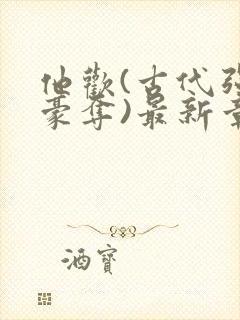 他歡(古代强
豪奪)最新章
酒寶